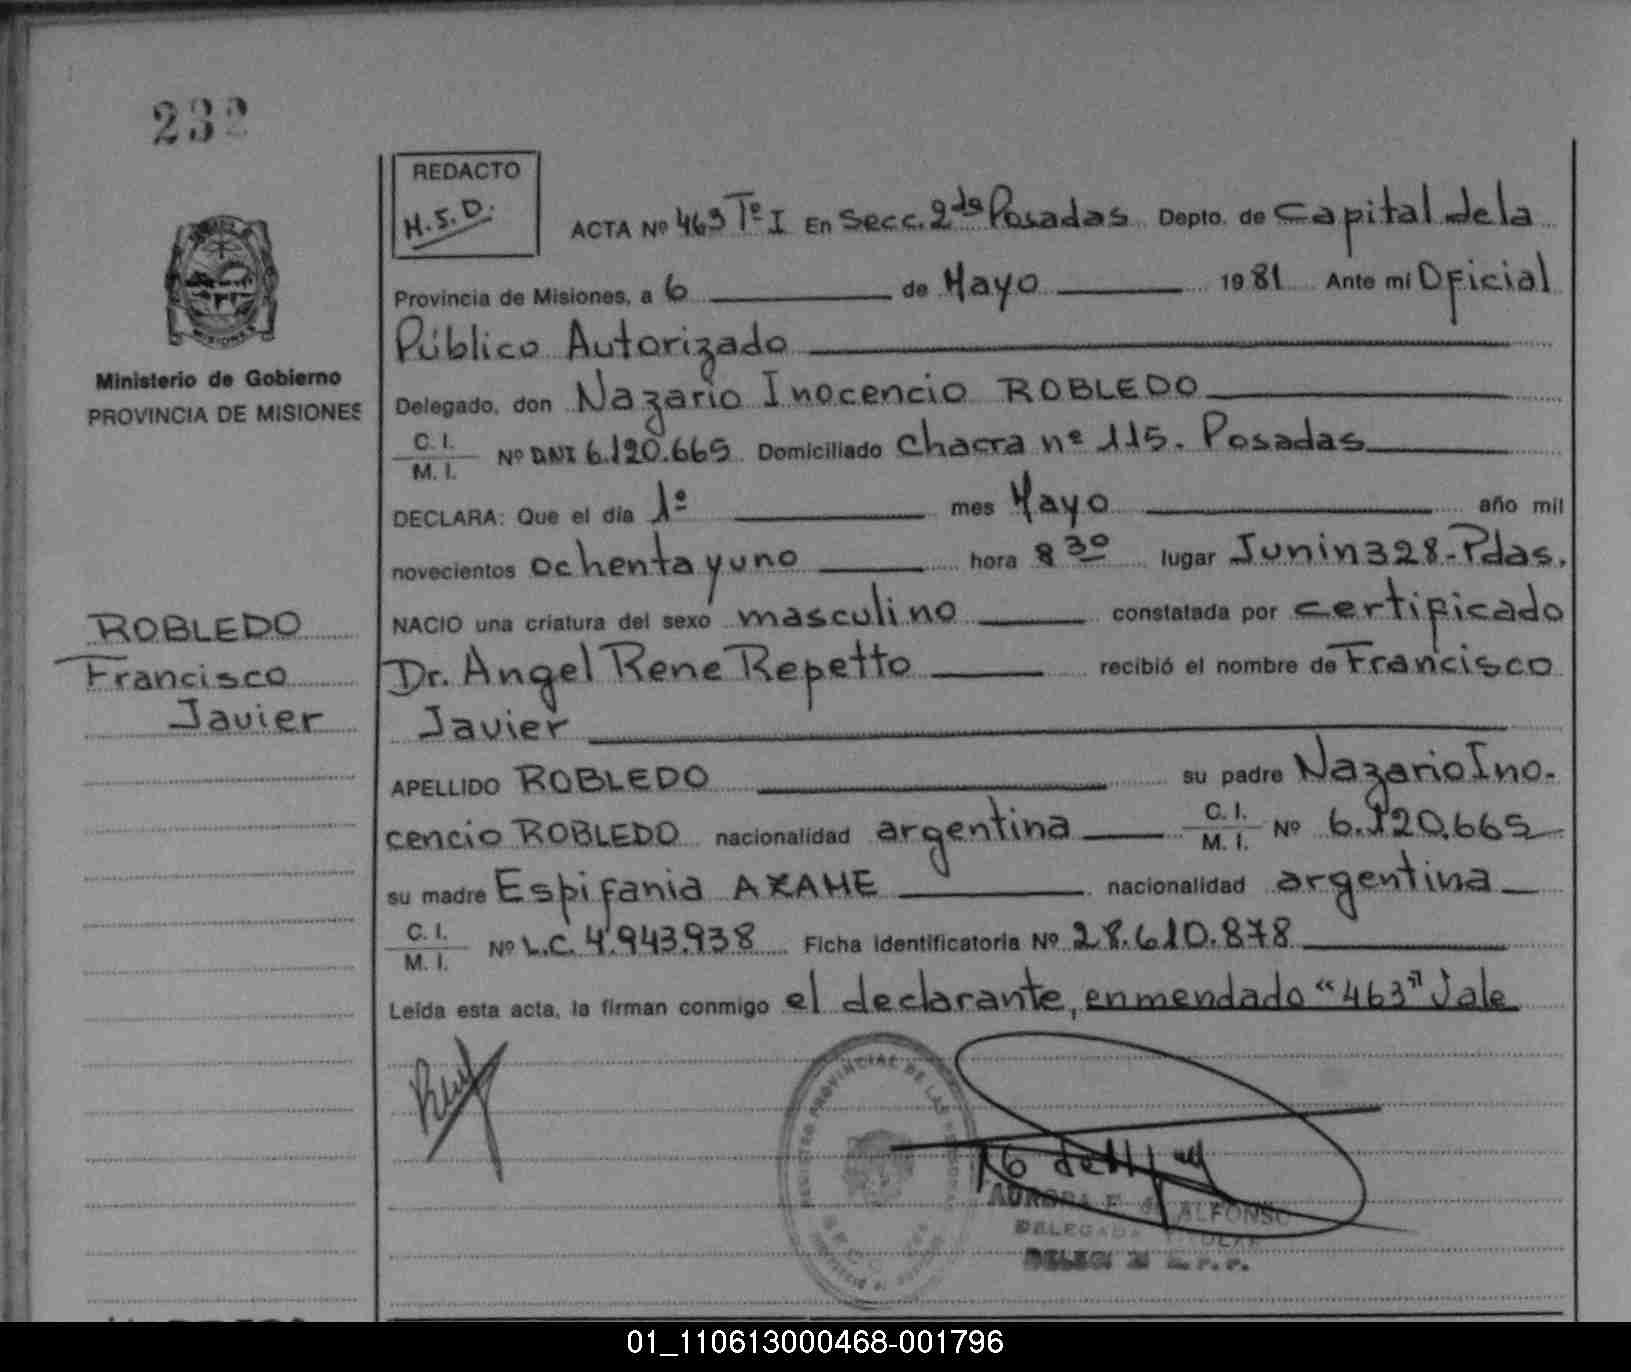 232
REDACTO
H.S.D.
ACTA Nº 463 Tº I En Secc. 2da Posadas Depto. de Capital de la
Provincia de Misiones, a 6 de Mayo 1981 Ante mi Oficial
Público Autorizado
MISIONES
Ministerio de Gobierno
PROVINCIA DE MISIONES
Delegado, don Nazario Inocencio ROBLEDO
C. I.
M. I. Nº DNI 6.120.665 Domiciliado Chacra nº 115. Posadas
DECLARA: Que el día 1º mes Mayo año mil
novecientos ochenta y uno hora 8 30 lugar Junin 328-Pdas.
NACIO una criatura del sexo masculino constatada por certificado
Dr. Angel Rene Repetto recibió el nombre de Francisco
Javier
ROBLEDO
Francisco
Javier
APELLIDO ROBLEDO su padre Nazario Ino-
cencio ROBLEDO nacionalidad argentina C. I. M. I. Nº 6.120.665
su madre Espifania AXAME nacionalidad argentina
C. I.
M. I. Nº L.C. 4.943.938 Ficha identificatoria Nº 28.610.878
Leída esta acta, la firman conmigo el declarante, enmendado "463" Vale
REGISTRO PROVINCIAL DE LAS PERSONAS
AURORA F. de ALFONSO
DELEGADA TITULAR
01_110613000468-001796